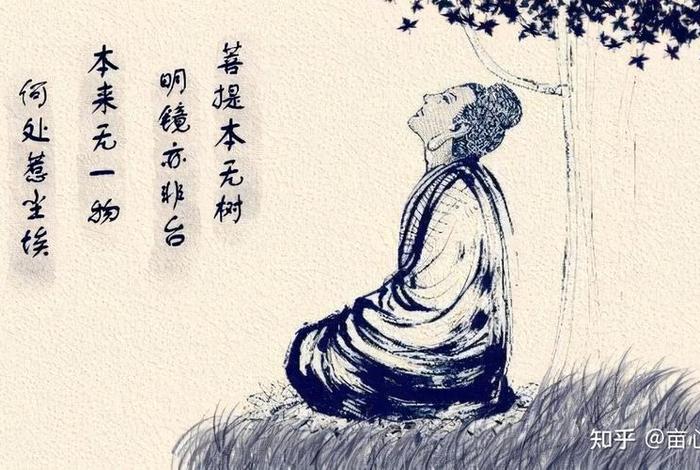 菩提本无树
明镜亦非台
本来无一物
何处惹尘埃
知乎 @亩心